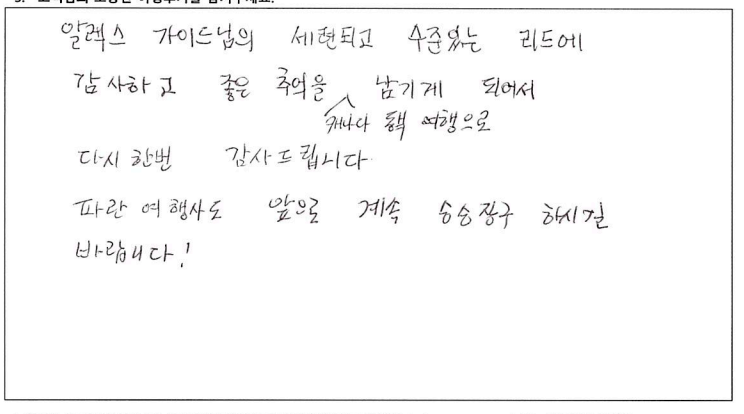 알렉스 가이드님의 세련되고 수준있는 리드에
감사하고 좋은 추억을 남기게 되어서
캐나다 동백 여행으로
다시 한번 감사드립니다.
파란 여행사도 앞으로 계속 승승장구 하시길
바랍니다!